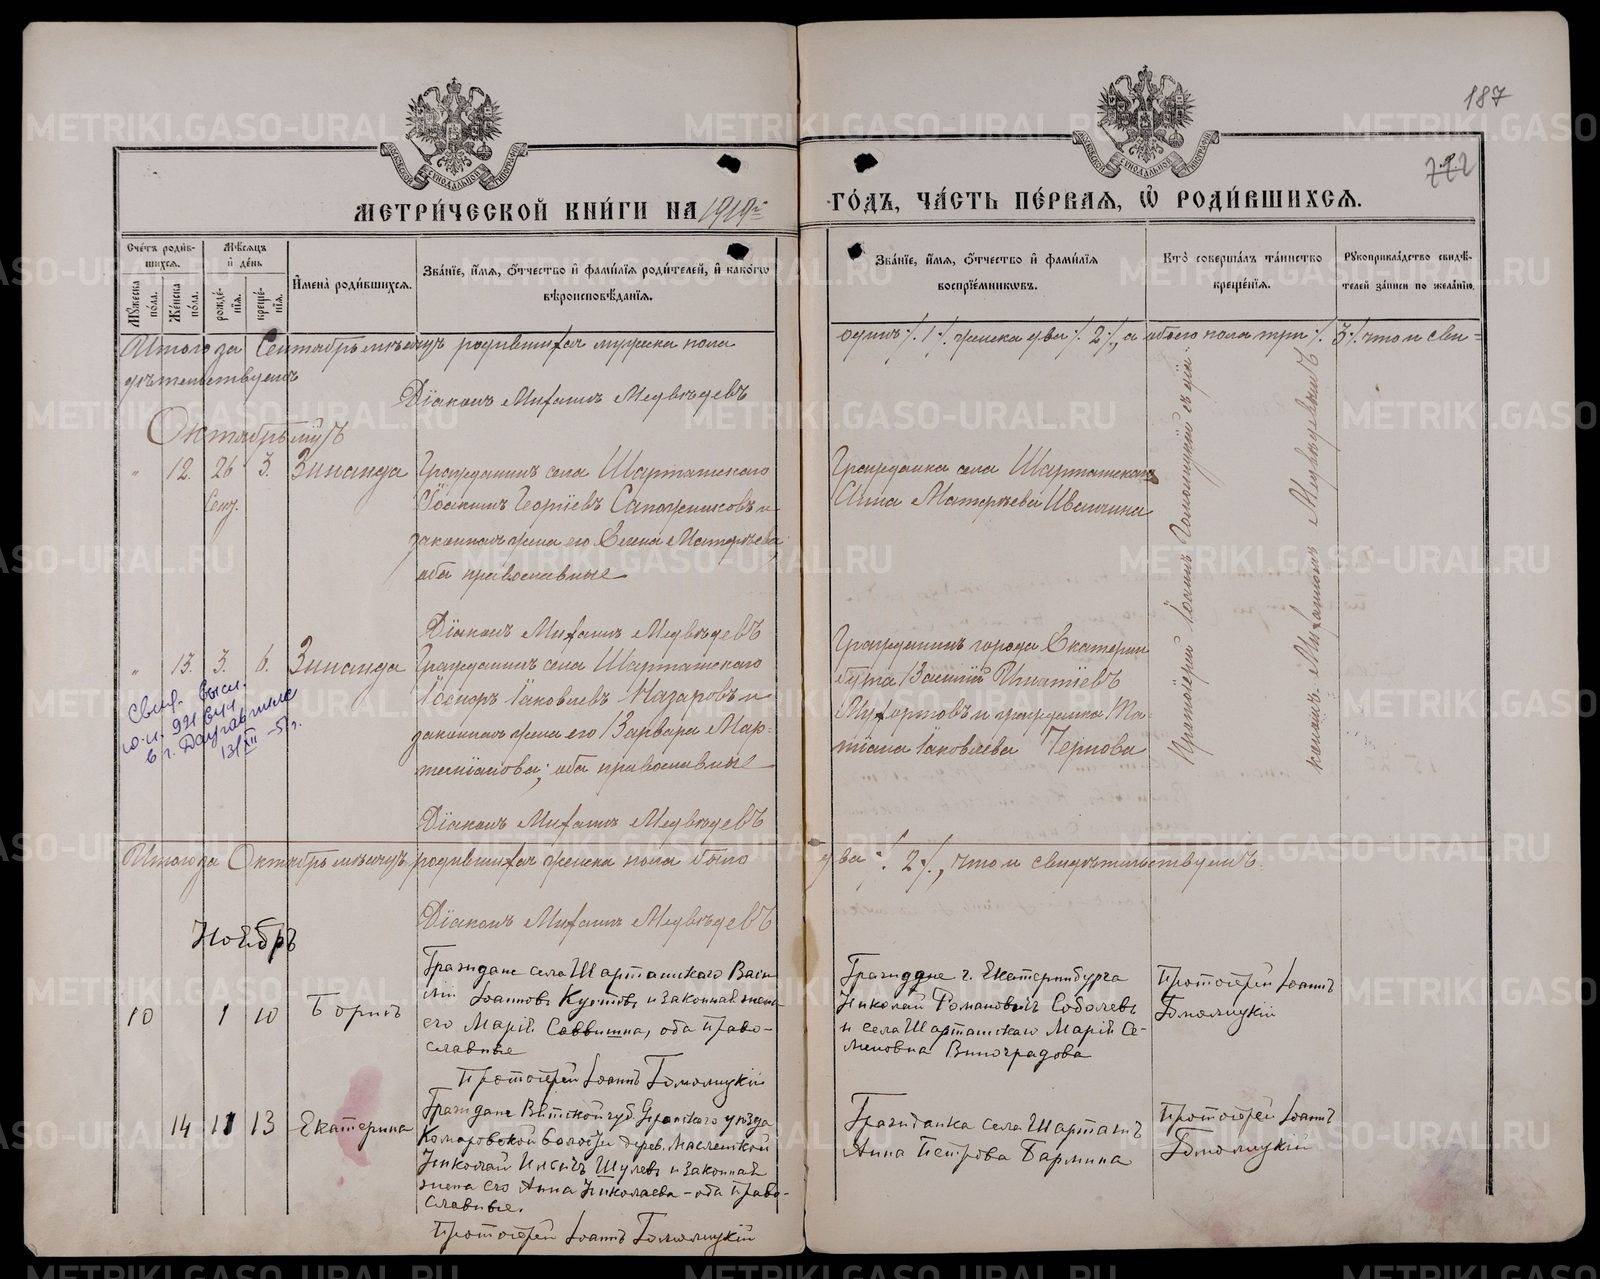 187
772
МЕТРИ́ЧЕСКОЙ КНИ́ГИ НА 1919й ГО́ДЪ, ЧА́СТЬ ПЕ́РВАЯ, Ѽ РОДИ́ВШИХСЯ.
Сче́тъ роди́в-
шихся.
Му́жеска по́ла.
Же́нска по́ла.
Мѣ́сяцъ
и҆ де́нь
рожде́-
нїѧ.
креще́-
нїѧ.
И҆мена̀ роди́вшихся.
Зва́нїе, и҆́мѧ, ѻ҆́тчество и҆ фами́лїѧ роди́телей, и҆ како́гѡ
вѣроисповѣ́данїѧ.
Зва́нїе, и҆́мѧ, ѻ҆́тчество и҆ фами́лїѧ
воспрїе́мникѡвъ.
Кто̀ соверша́лъ та́инство
креще́нїѧ.
Рꙋкоприкла́дство свидѣ́-
телей за́писи по жела́нїю.
Итого за Сентябрь мѣсяцъ родившихся мужска пола
одинъ ·/. 1 ·/. женска два ·/. 2 ·/., а обоего пола три ·/. 3 ·/. что и сви=
дѣтельствуемъ
Діаконъ Михаилъ Медвѣдевъ
Октябрь мцъ
" 12. 26 3. Зинаида
Сент.
Гражданинъ села Шарташскаго
Іоакимъ Георгіевъ Сапожниковъ и
законная жена его Елена Матѳѣева,
оба православные
Гражданка села Шарташскаго
Анна Матѳѣева Ивачина
Діаконъ Михаилъ Медвѣдевъ
" 13. 3. 6. Зинаида
Гражданинъ села Шарташскаго
Іаковлевъ Назаровъ и
законная жена его Варвара Мар-
оба православные
Гражданинъ города Екатерин
бурга Василій Игнатіевъ
и гражданка Та-
тіана Іаковлева Чернова
Протоіерей Іоаннъ
Михаиломъ Медвѣдевымъ
Свид. высл.
в г. Даугавпилс
13/XII-51г.
Діаконъ Михаилъ Медвѣдевъ
Итого за Октябрь мѣсяцъ родившихся женска пола было
два ·/. 2 ·/., что и свидѣтельствуемъ.
Діаконъ Михаилъ Медвѣдевъ
Ноябрь
10 1 10 Борисъ
Граждане села Шарташскаго Васи
лій Іоанновъ и законная жена
его Марія Саввишна, оба право-
славные
Граждане г. Екатеринбурга
Николай Романовичъ Соболевъ
и села Шарташскаго Марія Се-
меновна Виноградова
Протоіерей Іоаннъ
Протоіерей Іоаннъ
14 11 13 Екатерина
Граждане Вятской губ. уѣзда
Комаровской волости дерев.
Николай и законная
жена его Анна Николаева - оба право-
славные.
Гражданка села Шарташъ
Анна Петрова Бармина
Протоіерей Іоаннъ
Протоіерей Іоаннъ
METRIKI.GASO-URAL.RU